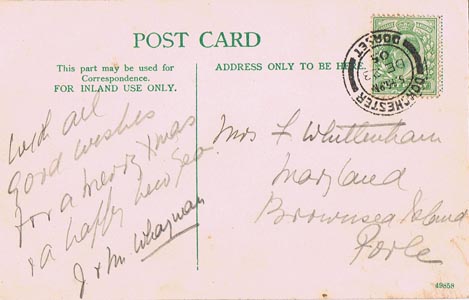 POST CARD
This part may be used for
Correspondence.
FOR INLAND USE ONLY.
ADDRESS ONLY TO BE HERE.
DORCHESTER
DORSET
With all
Good wishes
For a merry Xmas
& a happy new
J & M Chapman
Mrs F Whittenham
Maryland
Brownsea Island
Poole
49858